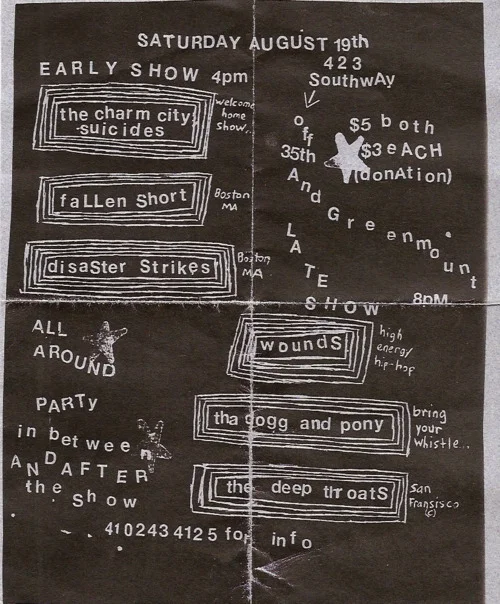 SATURDAY AUGUST 19th
EARLY SHOW 4pm
the charm city
suicides
welcome
home
show..
fallen short
Boston
MA
disaSter Strikes!
Boston
MA
423
SouthwAy
off
35th
And Greenmount
$5 both
$3 eACH
(donAtion)
LATE SHOW 8PM
woundS
high
energy
hip-hop
tha dogg and pony
bring
your
whistle...
the deep throatS
San
Fransisco
(c)
ALL
AROUND
PARTy
in between
ANDAFTER
the show
4102434125 for info